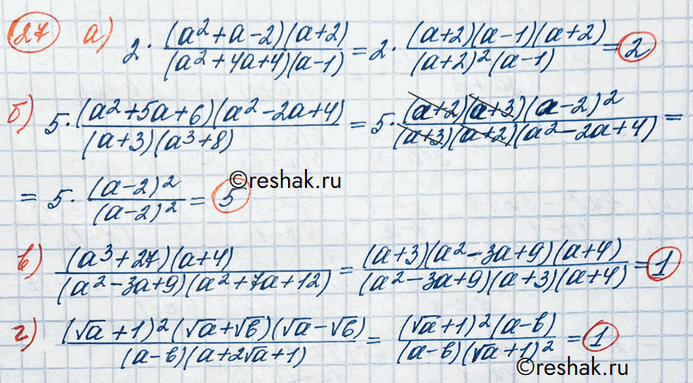 27 а) 2 · (a²+a-2)(a+2) / (a²+4a+4)(a-1) = 2 · (a+2)(a-1)(a+2) / (a+2)²(a-1) = 2
б) 5 · (a²+5a+6)(a²-2a+4) / (a+3)(a³+8) = 5 · (a+2)(a+3)(a-2)² / (a+3)(a+2)(a²-2a+4) =
= 5 · (a-2)² / (a-2)² = 5
©reshak.ru
в) (a³+27)(a+4) / (a²-3a+9)(a²+7a+12) = (a+3)(a²-3a+9)(a+4) / (a²-3a+9)(a+3)(a+4) = 1
г) (√a+1)²(√a+√b)(√a-√b) / (a-b)(a+2√a+1) = (√a+1)²(a-b) / (a-b)(√a+1)² = 1
©reshak.ru